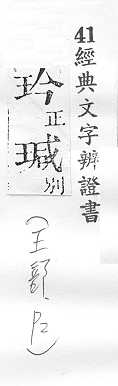 41經典文字辨證書
玪正
瑊別
(王部.P2)